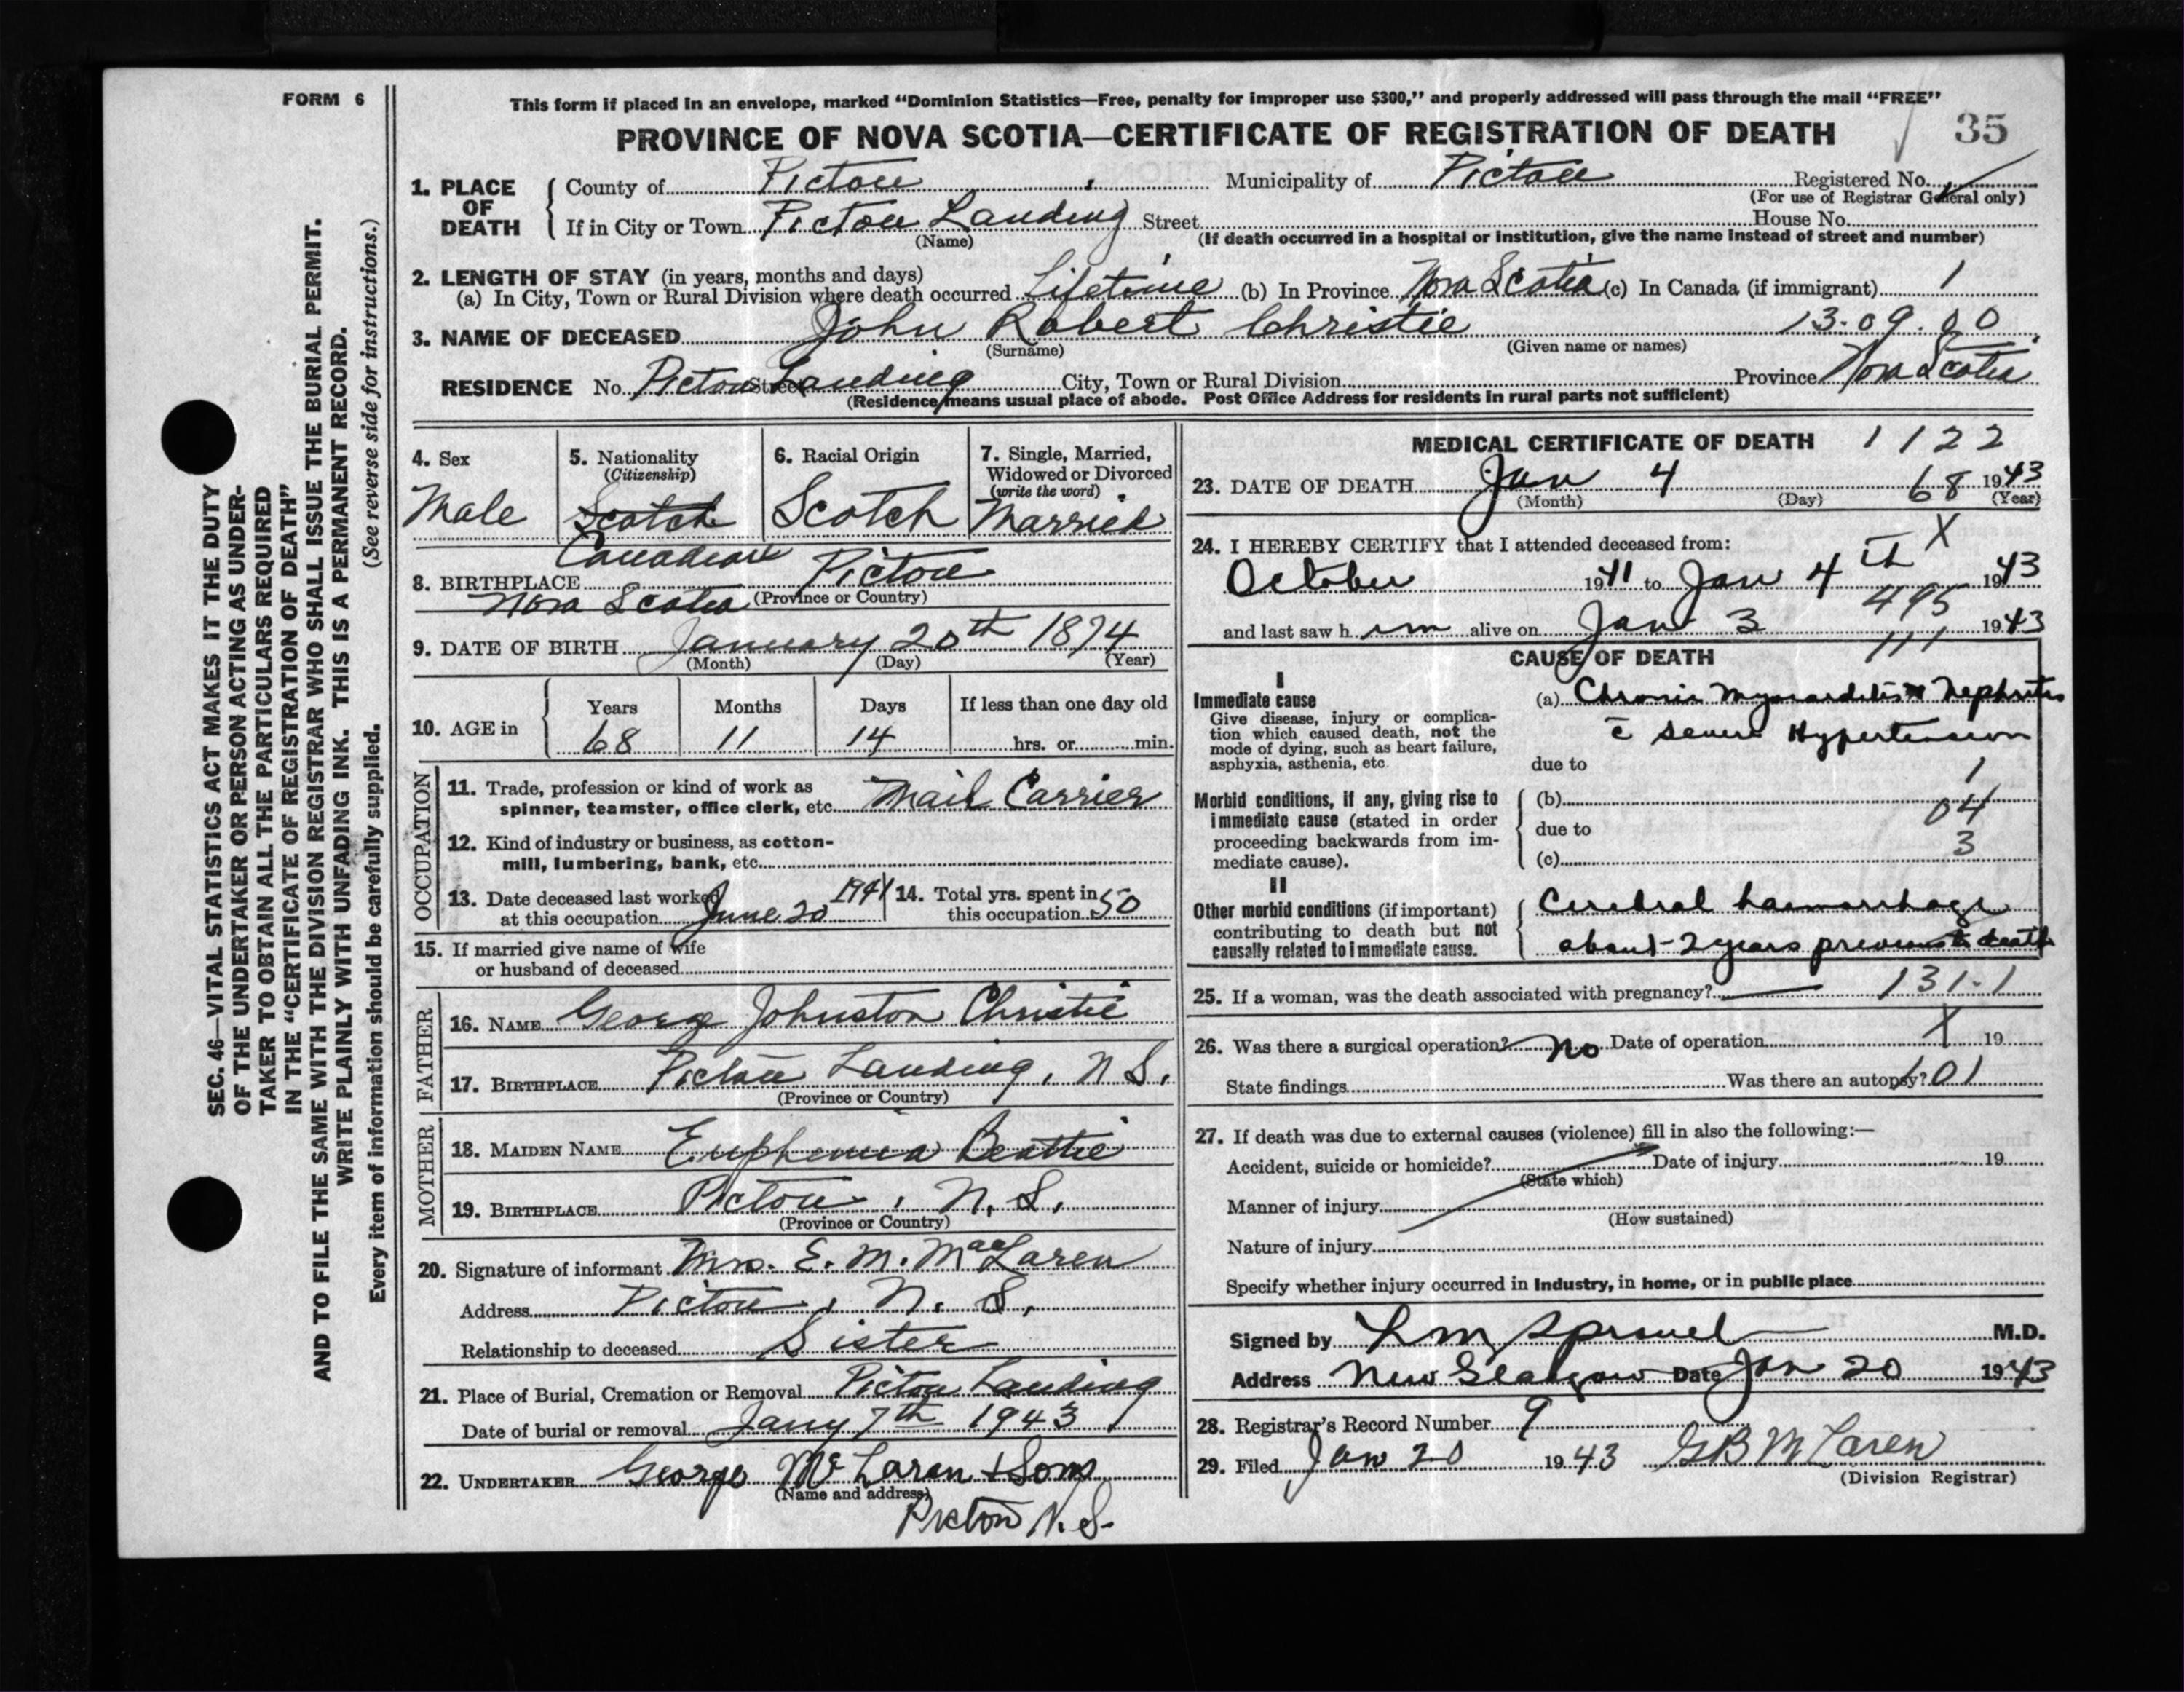 FORM 6
This form if placed in an envelope, marked “Dominion Statistics—Free, penalty for improper use $300,” and properly addressed will pass through the mail “FREE”
PROVINCE OF NOVA SCOTIA—CERTIFICATE OF REGISTRATION OF DEATH 35
1. PLACE OF DEATH
County of Pictou Municipality of Pictou Registered No.
(For use of Registrar General only)
If in City or Town Pictou Landing Street House No.
(Name) (If death occurred in a hospital or institution, give the name instead of street and number)
2. LENGTH OF STAY (in years, months and days)
(a) In City, Town or Rural Division where death occurred Lifetime (b) In Province Nova Scotia (c) In Canada (if immigrant) 1
3. NAME OF DECEASED John Robert Christie 13.09.00
(Surname) (Given name or names)
RESIDENCE No. Pictou Street Landing City, Town or Rural Division Province Nova Scotia
(Residence means usual place of abode. Post Office Address for residents in rural parts not sufficient)
4. Sex
Male
5. Nationality
(Citizenship)
Scotch
Canadian
6. Racial Origin
Scotch
7. Single, Married,
Widowed or Divorced
(write the word)
Married
8. BIRTHPLACE Pictou
Nova Scotia (Province or Country)
9. DATE OF BIRTH January 20th 1874
(Month) (Day) (Year)
10. AGE in
Years Months Days If less than one day old
68 11 14 hrs. or min.
OCCUPATION
11. Trade, profession or kind of work as
spinner, teamster, office clerk, etc. Mail Carrier
12. Kind of industry or business, as cotton-
mill, lumbering, bank, etc.
13. Date deceased last worked
at this occupation June 20 1941
14. Total yrs. spent in
this occupation 50
15. If married give name of wife
or husband of deceased
FATHER
16. NAME George Johnston Christie
17. BIRTHPLACE Pictou Landing, N S.
(Province or Country)
MOTHER
18. MAIDEN NAME Euphemia Beattie
19. BIRTHPLACE Pictou, N. S.
(Province or Country)
20. Signature of informant Mrs. E. M. MacLaren
Address Pictou, N. S.
Relationship to deceased Sister
21. Place of Burial, Cremation or Removal Pictou Landing
Date of burial or removal Jany 7th 1943
22. UNDERTAKER George McLaren & Sons
(Name and address)
Pictou N. S.
MEDICAL CERTIFICATE OF DEATH 1122
23. DATE OF DEATH Jan 4 68 1943
(Month) (Day) (Year)
X
24. I HEREBY CERTIFY that I attended deceased from:
October 1941 to Jan 4th 1943
495
and last saw him alive on Jan 3 1943
111
CAUSE OF DEATH
I
Immediate cause
Give disease, injury or complica-
tion which caused death, not the
mode of dying, such as heart failure,
asphyxia, asthenia, etc.
(a) Chronic Myocarditis & Nephritis
c̄ severe Hypertension
due to
1
Morbid conditions, if any, giving rise to
immediate cause (stated in order
proceeding backwards from im-
mediate cause).
(b)
04
due to
3
(c)
II
Other morbid conditions (if important)
contributing to death but not
causally related to immediate cause.
Cerebral haemorrhage
about 2 years previous to death
25. If a woman, was the death associated with pregnancy? — 131-1
X
26. Was there a surgical operation? No Date of operation 19
State findings Was there an autopsy? 101
27. If death was due to external causes (violence) fill in also the following:—
Accident, suicide or homicide? Date of injury 19
(State which)
Manner of injury
(How sustained)
Nature of injury
Specify whether injury occurred in Industry, in home, or in public place
Signed by L M Sproul M.D.
Address New Glasgow Date Jan 20 1943
28. Registrar's Record Number 9
29. Filed Jan 20 1943 G B McLaren
(Division Registrar)
SEC. 46—VITAL STATISTICS ACT MAKES IT THE DUTY
OF THE UNDERTAKER OR PERSON ACTING AS UNDER-
TAKER TO OBTAIN ALL THE PARTICULARS REQUIRED
IN THE “CERTIFICATE OF REGISTRATION OF DEATH”
AND TO FILE THE SAME WITH THE DIVISION REGISTRAR WHO SHALL ISSUE THE BURIAL PERMIT.
WRITE PLAINLY WITH UNFADING INK. THIS IS A PERMANENT RECORD.
Every item of information should be carefully supplied. (See reverse side for instructions.)